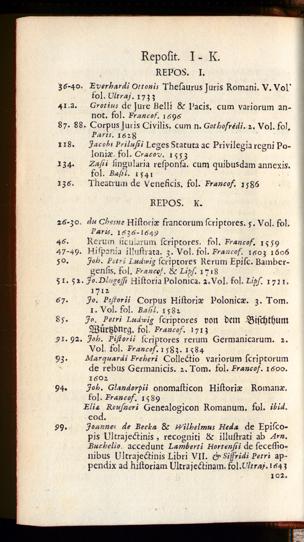 Reposit. I - K.
REPOS. I.
36-40. Everhardi Ottonis Thesaurus Juris Romani. V. Vol.
fol. Ultraj. 1733
41.2. Grotius de Jure Belli & Pacis, cum variorum an-
not. fol. Francof. 1696
87. 88. Corpus Juris Civilis. cum n. Gothofredi. 2. Vol. fol.
Paris. 1628
118. Jacobi Prilusii Leges Statuta ac Privilegia regni Po-
loniæ. fol. Cracov. 1553
134. Zasii singularia responsa. cum quibusdam annexis.
fol. Basil. 1541
136. Theatrum de Veneficis. fol. Francof. 1586
REPOS. K.
26-30. du Chesne Historiæ francorum scriptores. 5. Vol. fol.
Paris. 1636-1649
46. Rerum sicularum scriptores. fol. Francof. 1559
47-49. Hispania illustrata. 3. Vol. fol. Francof. 1603 1606
50. Joh. Petri Ludwig scriptores Rerum Episc. Bamber-
gensis. fol. Francof. & Lips. 1718
51. 52. Jo. Dlugossi Historia Polonica. 2. Vol. fol. Lips. 1711.
1712
67. Jo. Pistorii Corpus Historiæ Polonicæ. 3. Tom.
1. Vol. fol. Basil. 1582
85. Jo. Petri Ludwig scriptores von dem Bischthum
Würtzburg. fol. Francof. 1713
91. 92. Joh. Pistorii scriptores rerum Germanicarum. 2.
Vol. fol. Francof. 1583. 1584
93. Marquardi Freheri Collectio variorum scriptorum
de rebus Germanicis. 2. Tom. fol. Francof. 1600.
1602
94. Joh. Glandorpii onomasticon Historiæ Romanæ.
fol. Francof. 1589
Eliæ Reusneri Genealogicon Romanum. fol. ibid.
eod.
99. Joannes de Becka & Wilhelmus Heda de Episco-
pis Ultrajectinis, recogniti & illustrati ab Arn.
Buchelio. accedunt Lamberti Hortensii de secessio-
nibus Ultrajectinis Libri VII. & Siffridi Petri ap-
pendix ad historiam Ultrajectinam. fol. Ultraj. 1643
102.